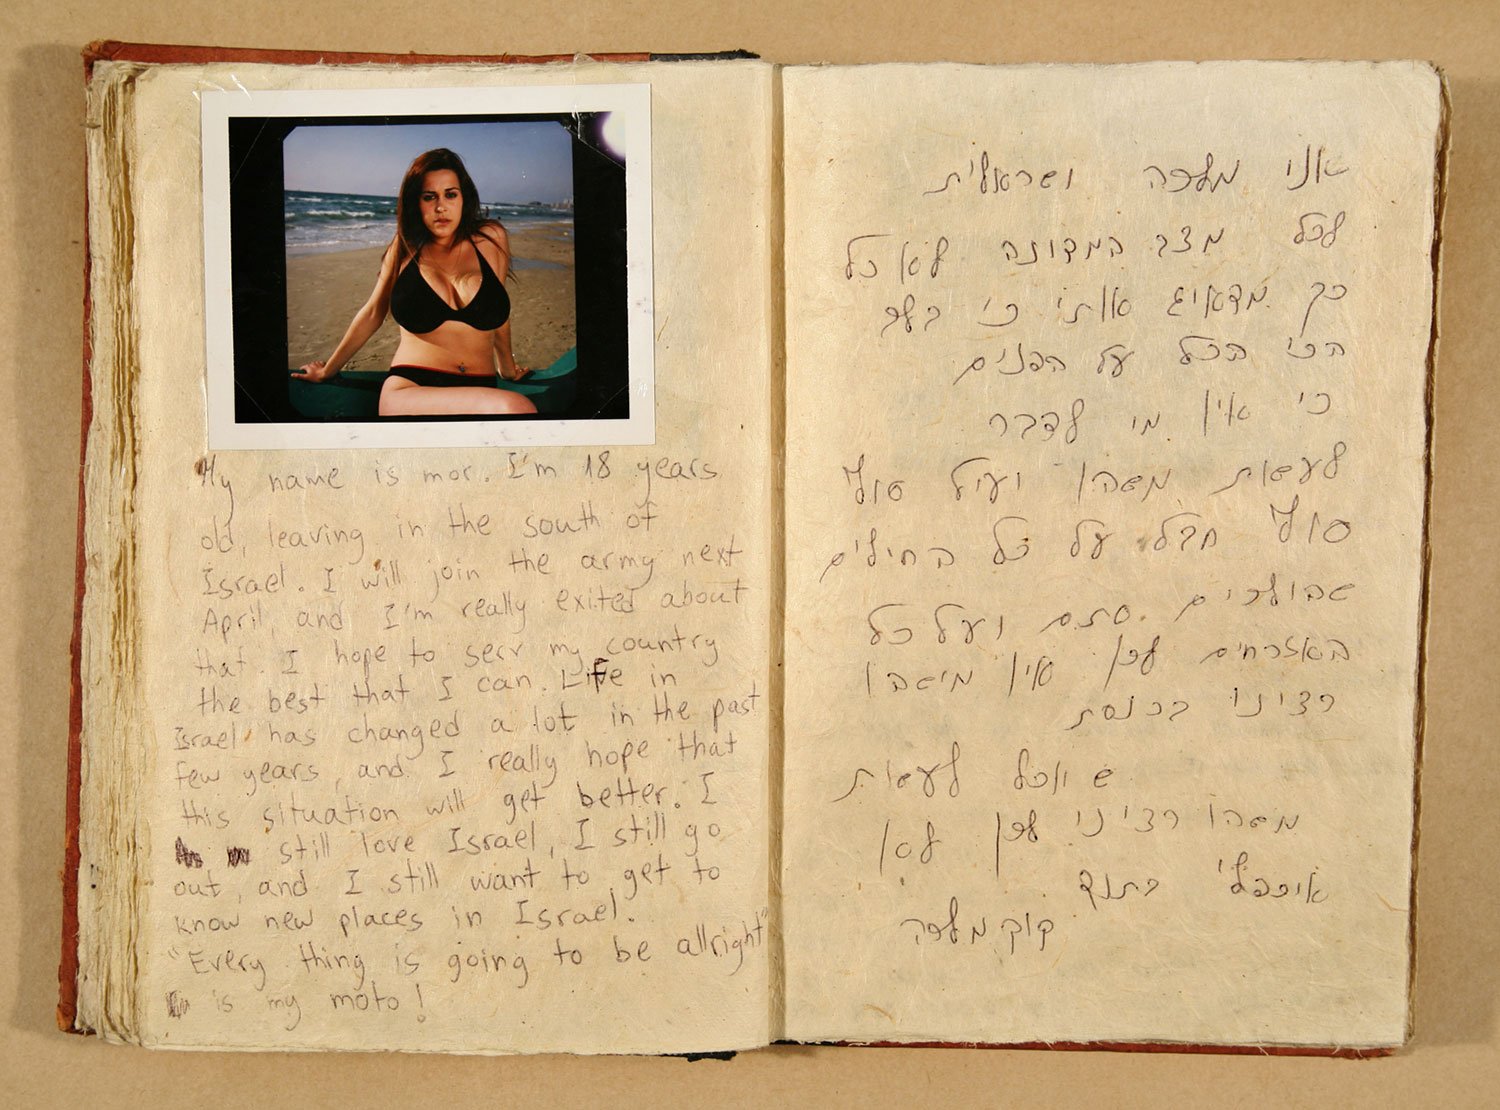 My name is mor. I'm 18 years
old, leaving in the south of
Israel. I will join the army next
April, and I'm really exited about
that. I hope to serv my country
the best that I can. Life in
Israel has changed a lot in the past
few years, and I really hope that
this situation will get better. I
still love Israel, I still go
out, and I still want to get to
know new places in Israel.
"Every thing is going to be allright"
is my moto!
אני מלכה ישראלית
לכל מצב המדינה לא כל
כך מדאיג אותי כי בעצ
הכי הכל על הפנים
כי אין מי לדבר
לעשות משהו ועיל סוף
סוף חבל על כל החילים
שהולכים סתם ועל כל
האזרחים לכן אין מישהו
רציני בכנסת
שיוכל לעשות
משהו רציני לכן לא
איכפלי בתוד
קוק מלכה